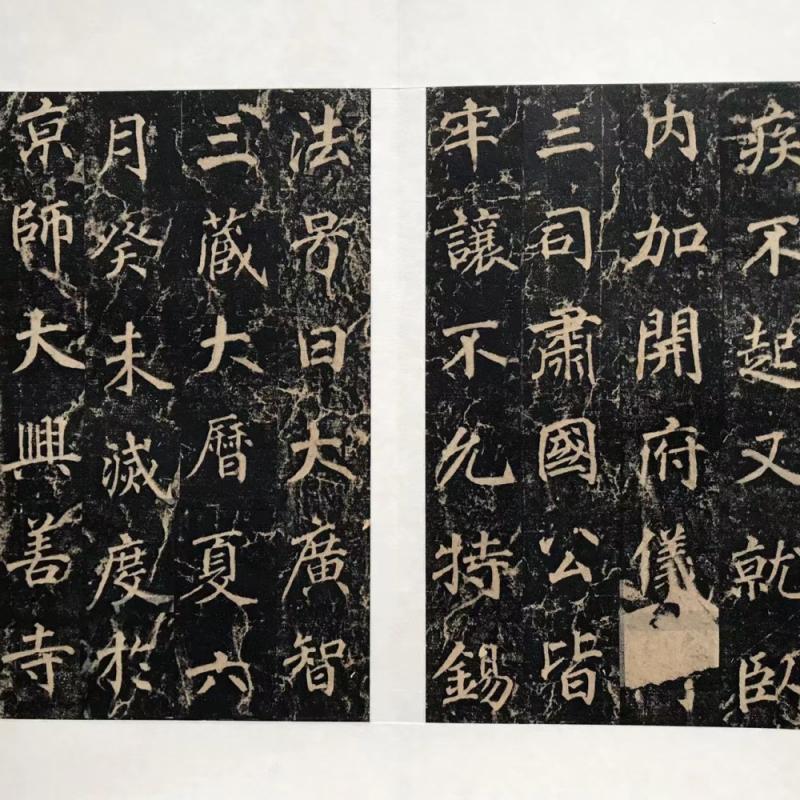 疾不起又就臥
内加開府儀
三司肅國公皆
牢讓不允特錫
法号曰大廣智
三藏大曆夏六
月癸未滅度於
京師大興善寺